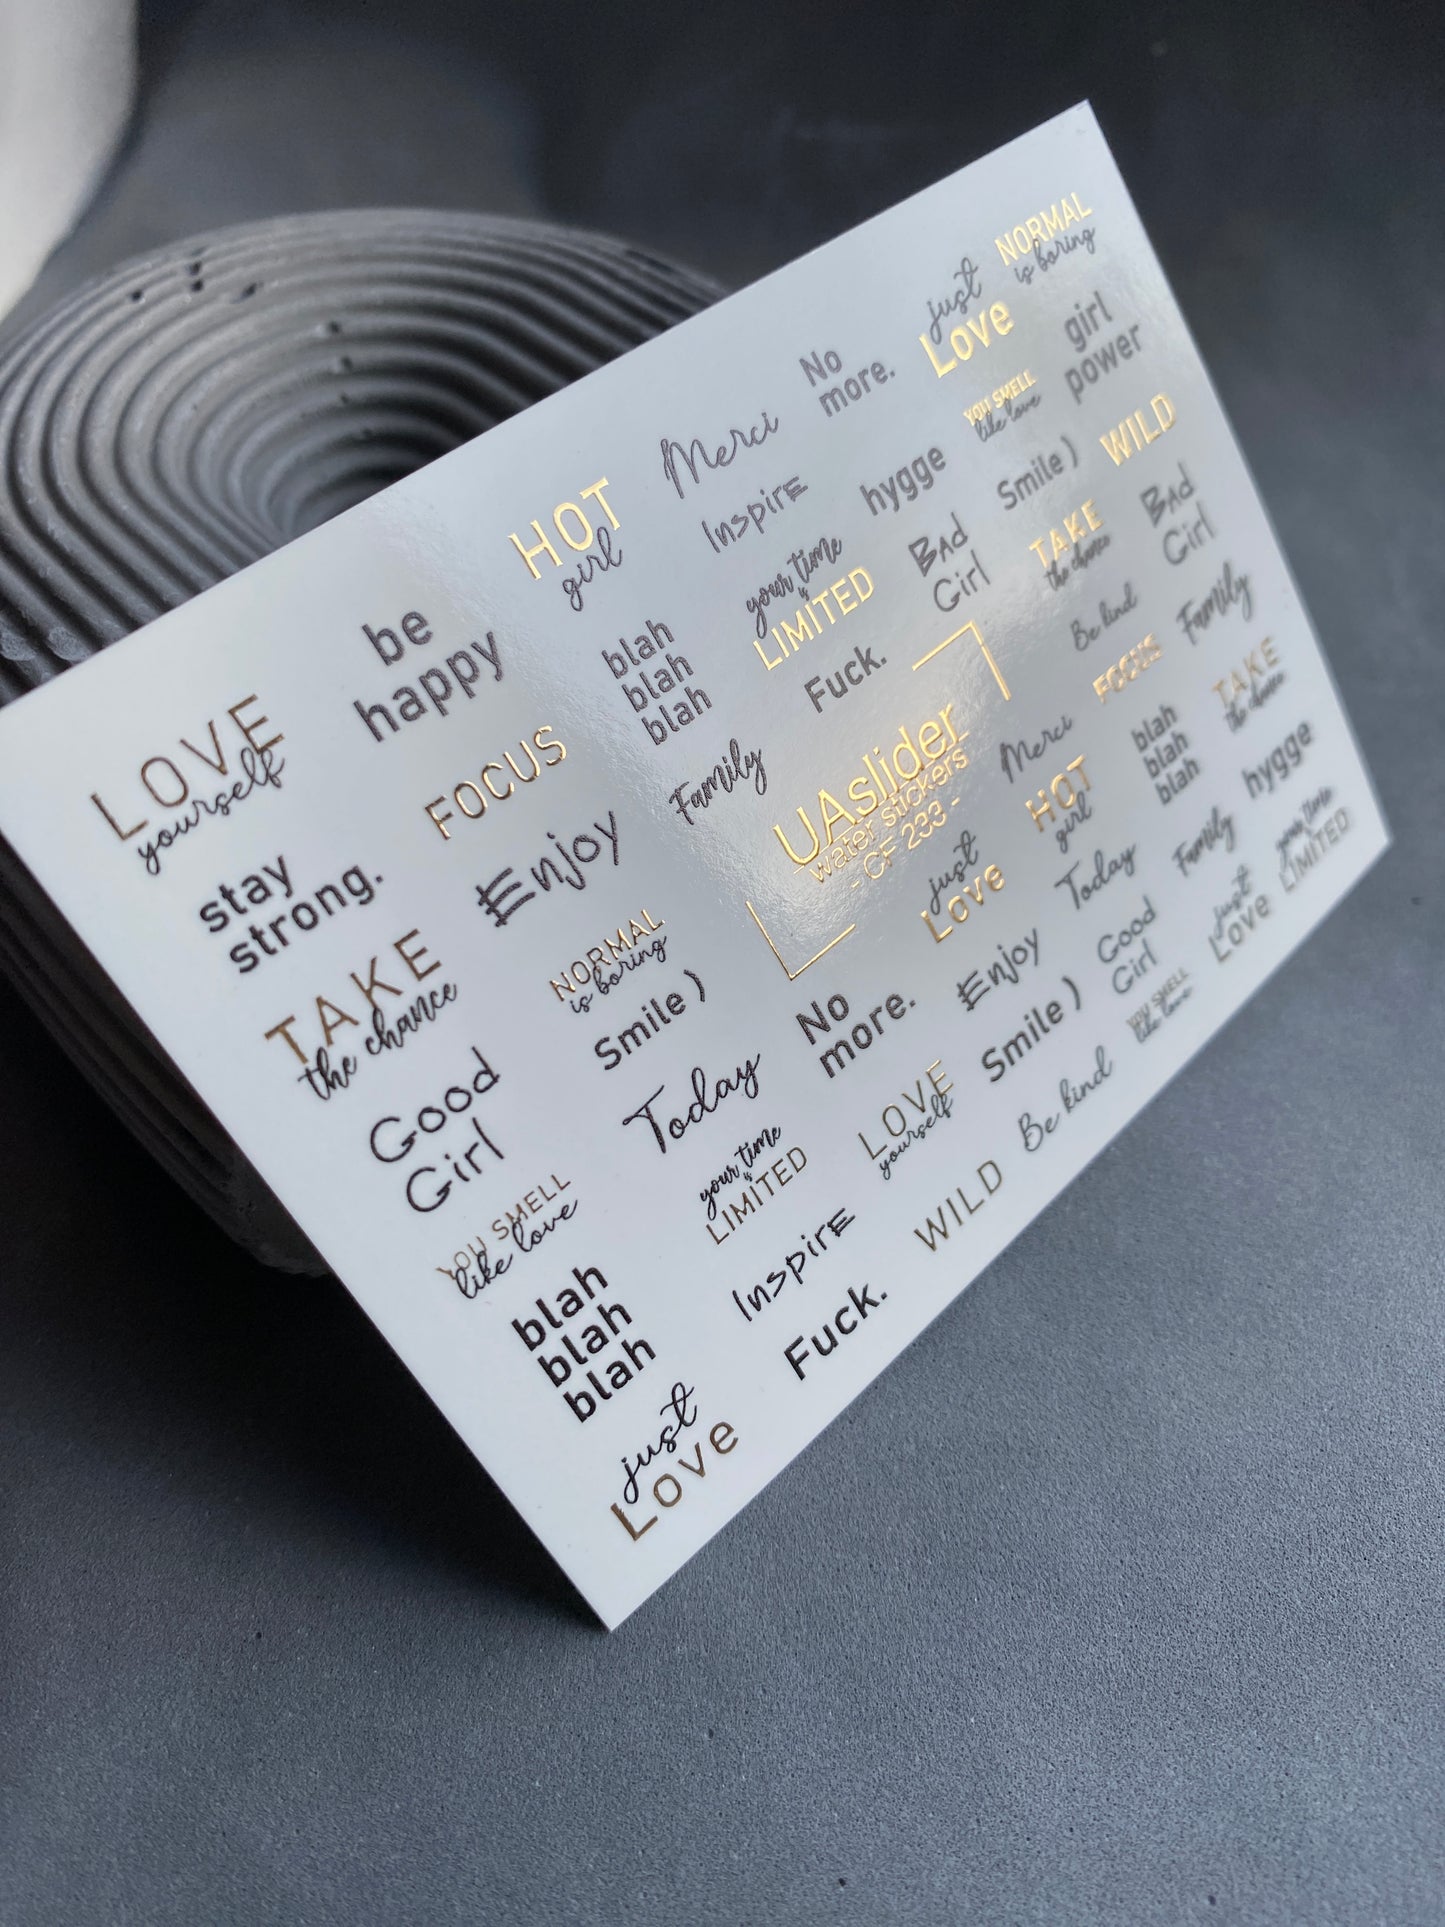 LOVE
yourself
be
happy
HOT
girl
Merci
No
more.
just
Love
NORMAL
is boring
stay
strong.
FOCUS
blah
blah
blah
Inspire
hygge
YOU SMELL
like love
girl
power
TAKE
the chance
Enjoy
Family
your time
is
LIMITED
Bad
Girl
Smile )
WILD
Good
Girl
NORMAL
is boring
Fuck.
TAKE
the chance
Bad
Girl
YOU SMELL
like love
Smile )
UAslider
water stickers
- CF 233 -
Be kind
Family
blah
blah
blah
Today
Merci
FOCUS
TAKE
the chance
just
Love
your time
is
LIMITED
No
more.
just
Love
HOT
girl
blah
blah
blah
hygge
Inspire
LOVE
yourself
Enjoy
Today
Family
your time
is
LIMITED
Fuck.
WILD
Smile )
Good
Girl
just
Love
Be kind
YOU SMELL
like love